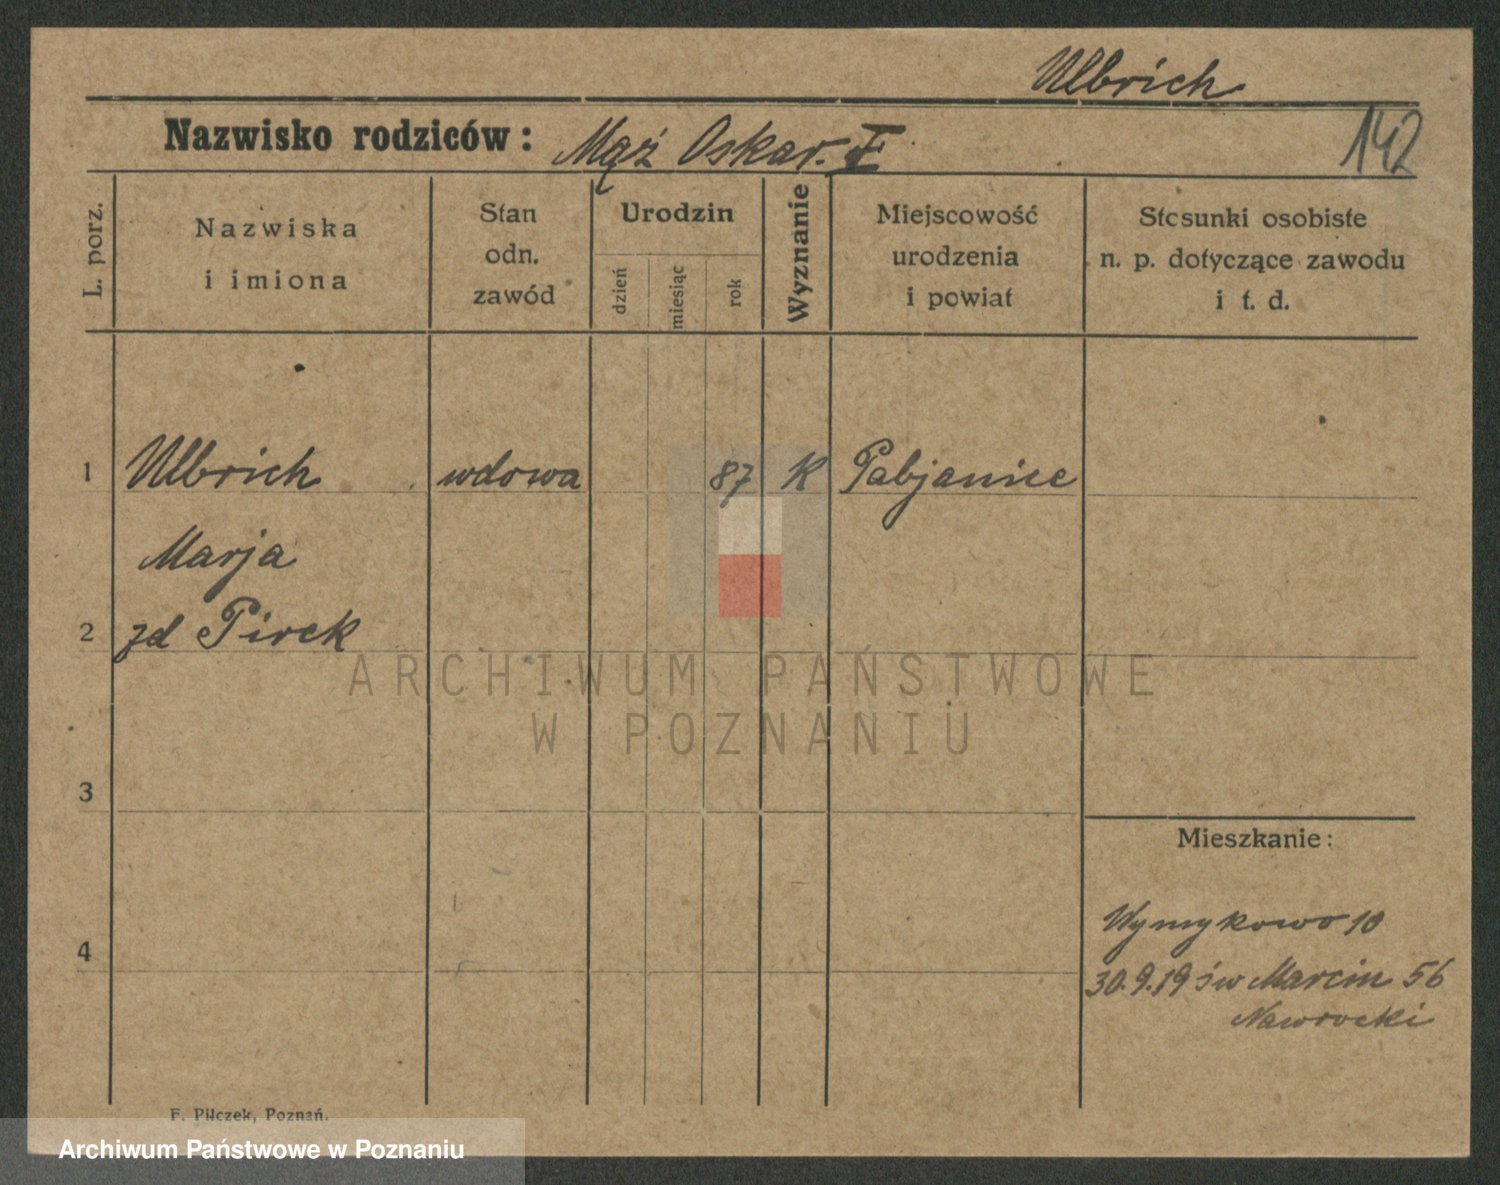 Ulbrich
Nazwisko rodziców: Mąż Oskar.
142
L. porz.
Nazwiska
i imiona
Stan
odn.
zawód
Urodzin
dzień
miesiąc
rok
Wyznanie
Miejscowość
urodzenia
i powiat
Stosunki osobiste
n. p. dotyczące zawodu
i t. d.
1 Ulbrich wdowa 87 K Pabjanice
Marja
2 zd Pirek
ARCHIWUM PAŃSTWOWE
W POZNANIU
3
Mieszkanie:
Wymykowo 10
4
30.9.19 św Marcin 56
Nawrocki
F. Pilczek, Poznań.
Archiwum Państwowe w Poznaniu